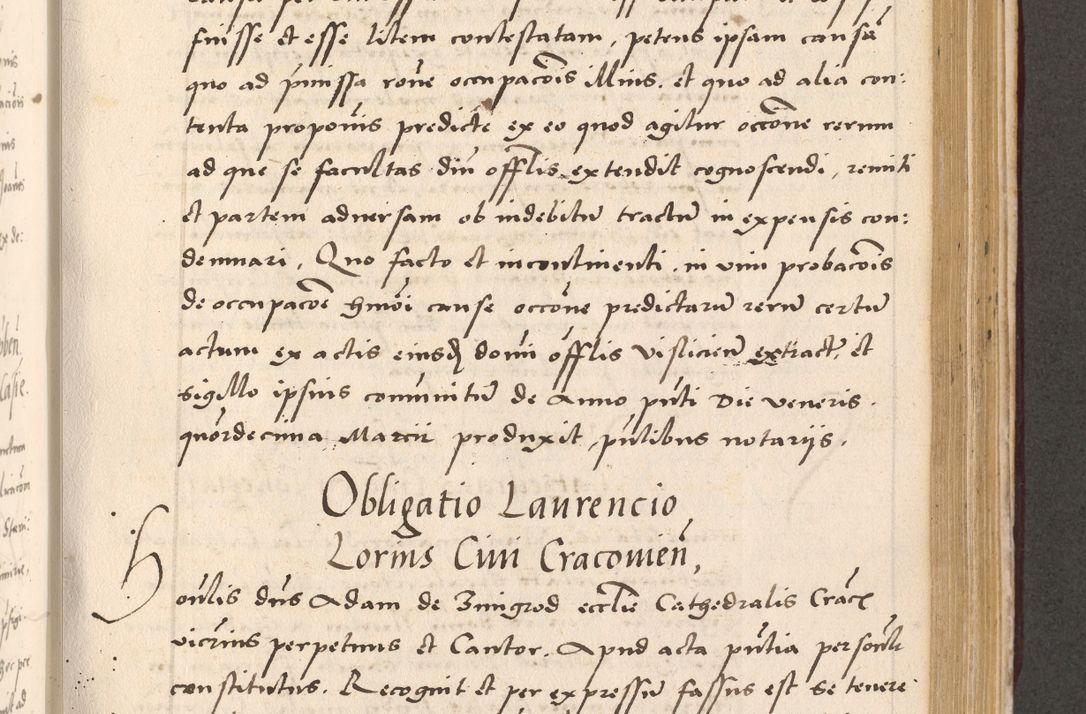 fuisse et esse litem contestatam, petens ipsam causā
quo ad p̄missa rōne occupacōis illius. et quo ad alia con:
tenta propōnis predicte ex eo quod agitur occōne rerum
ad que se facultas dīn offlis extendit cognoscendi, remitti
et partem adversam ob indebitū tractū in expensis con:
demnari, Quo facto et incontinenti in vim probacōis
de occupacōe hmōi cause occōne predictarū rerū certū
actum ex actis eiusd domi offlis vislicien̄ extractū, et
sigillo ipsius comūnitū de Anno pn̄ti Die veneris.
quardecima Marcii produxit, pn̄tibus notariis.
Obligatio Laurencio
Lorius Civi Cracovien̄,
Honōlis dn̄s Adam de Zmigrod ecclie Cathedralis Crac̄
vicrius perpetuus et Cantor. Apud acta pn̄tia persōnlr
constitutus. Recognit et per expressū fassus est se tenere